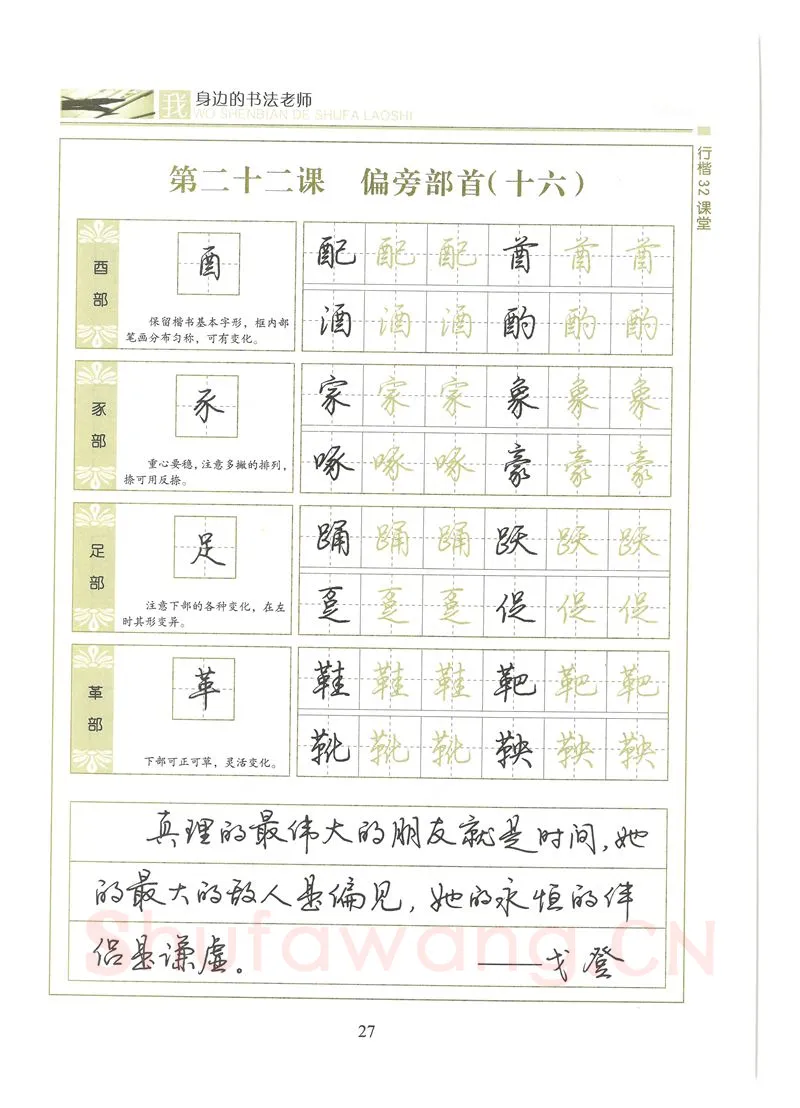 我 身边的书法老师
WO SHENBIAN DE SHUFA LAOSHI
行楷32课堂
第二十二课 偏旁部首(十六)
酉部
酉
保留楷书基本字形,框内部
笔画分布匀称,可有变化。
配 配 配 酋 酋 酋
酒 酒 酒 酌 酌 酌
豕部
豕
重心要稳,注意多撇的排列,
捺可用反捺。
家 家 家 象 象 象
啄 啄 啄 豪 豪 豪
足部
足
注意下部的各种变化,在左
时其形变异。
踊 踊 踊 跃 跃 跃
趸 趸 趸 促 促 促
革部
革
下部可正可草,灵活变化。
鞋 鞋 鞋 靶 靶 靶
靴 靴 靴 鞅 鞅 鞅
真理的最伟大的朋友就是时间,她
的最大的敌人是偏见,她的永恒的伴
侣是谦虚。 ——戈登
Shufawang.CN
27